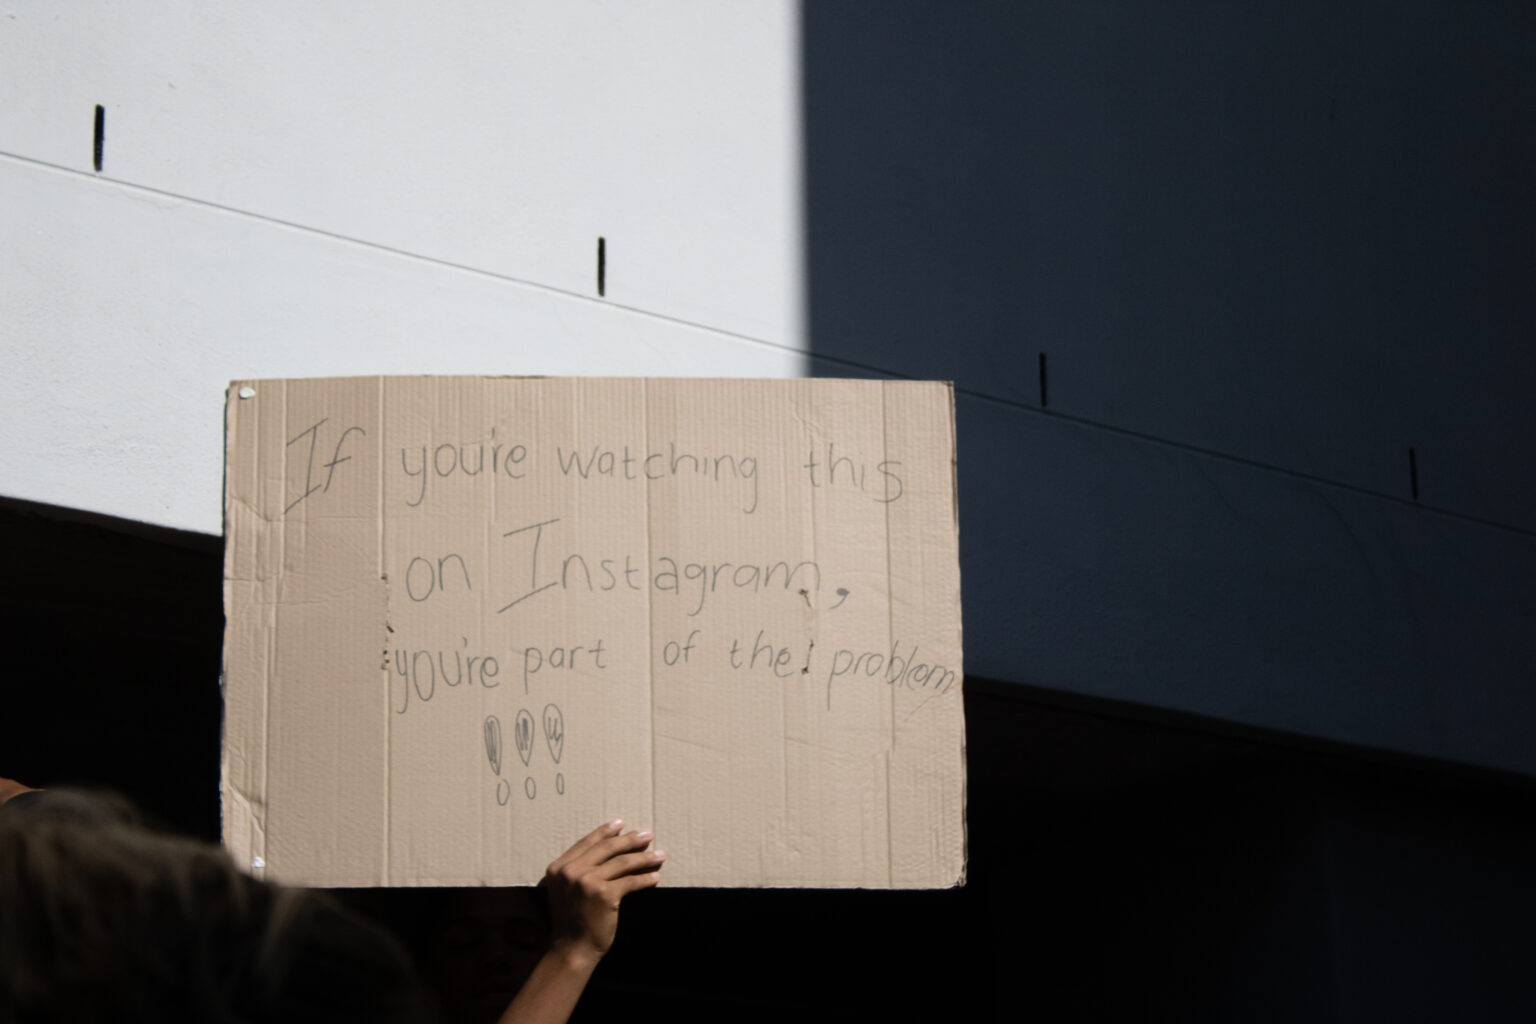 If you're watching this
on Instagram,
you're part of the problem
!!!